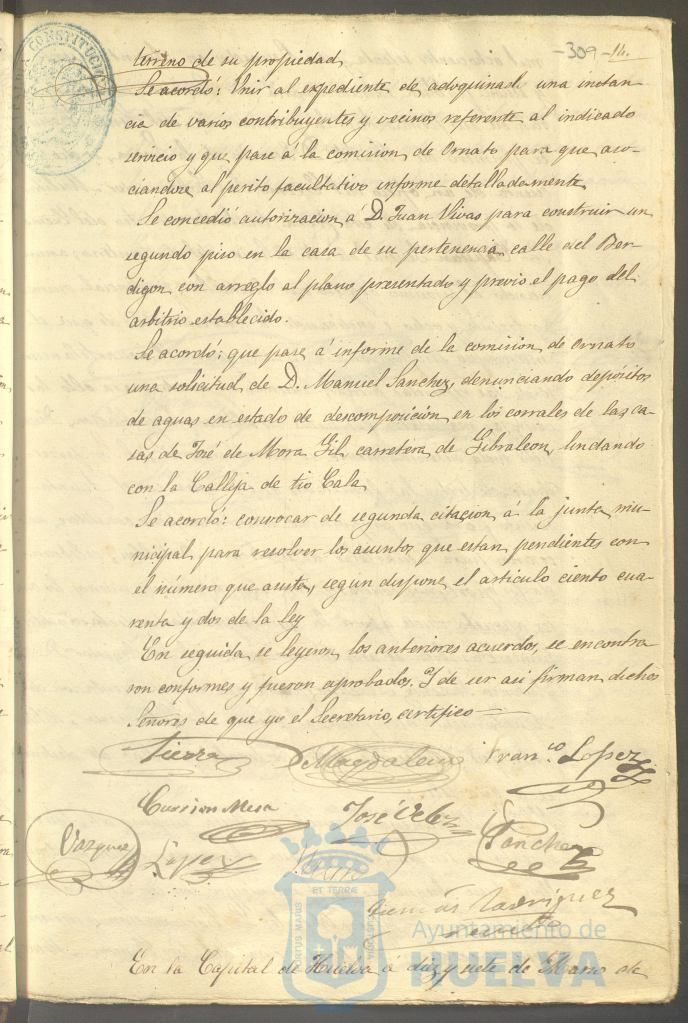 -309-14.
terreno de su propiedad,
Se acordó: Unir al expediente de adoquinado una instan-
cia de varios contribuyentes y vecinos referente al indicado
servicio y que pase á la comision de Ornato para que aso-
ciandose al perito facultativo informe detalladamente
Se concedió autorizacion á D. Juan Vivas para construir un
segundo piso en la casa de su pertenencia, calle del Bor-
digon, con arreglo al plano presentado y previo el pago del
arbitrio establecido.
Se acordó: que pase á informe de la comision de Ornato
una solicitud de D. Manuel Sanchez, denunciando depósitos
de aguas en estado de descomposición en los corrales de las ca-
sas de José de Mora Gil, carretera de Gibraleon, lindando
con la Calleja de tio Cala
Se acordó: convocar de segunda citacion á la junta mu-
nicipal para resolver los asuntos que estan pendientes con
el número que asista, segun dispone el articulo ciento cua-
renta y dos de la ley
En seguida se leyeron los anteriores acuerdos, se encontra
ron conformes y fueron aprobados. Y de ser asi firman dichos
Señores de que yo el Secretario, certifico
Tierra Magdalena Fran.co Lopez
Mesa José Velez Sanchez
Vazquez Lopez
Rodriguez
En la Capital de Huelva á diez y siete de Marzo de
CONSTITUCION
ET TERRÆ
PORTUS MARIS
Ayuntamiento de
HUELVA